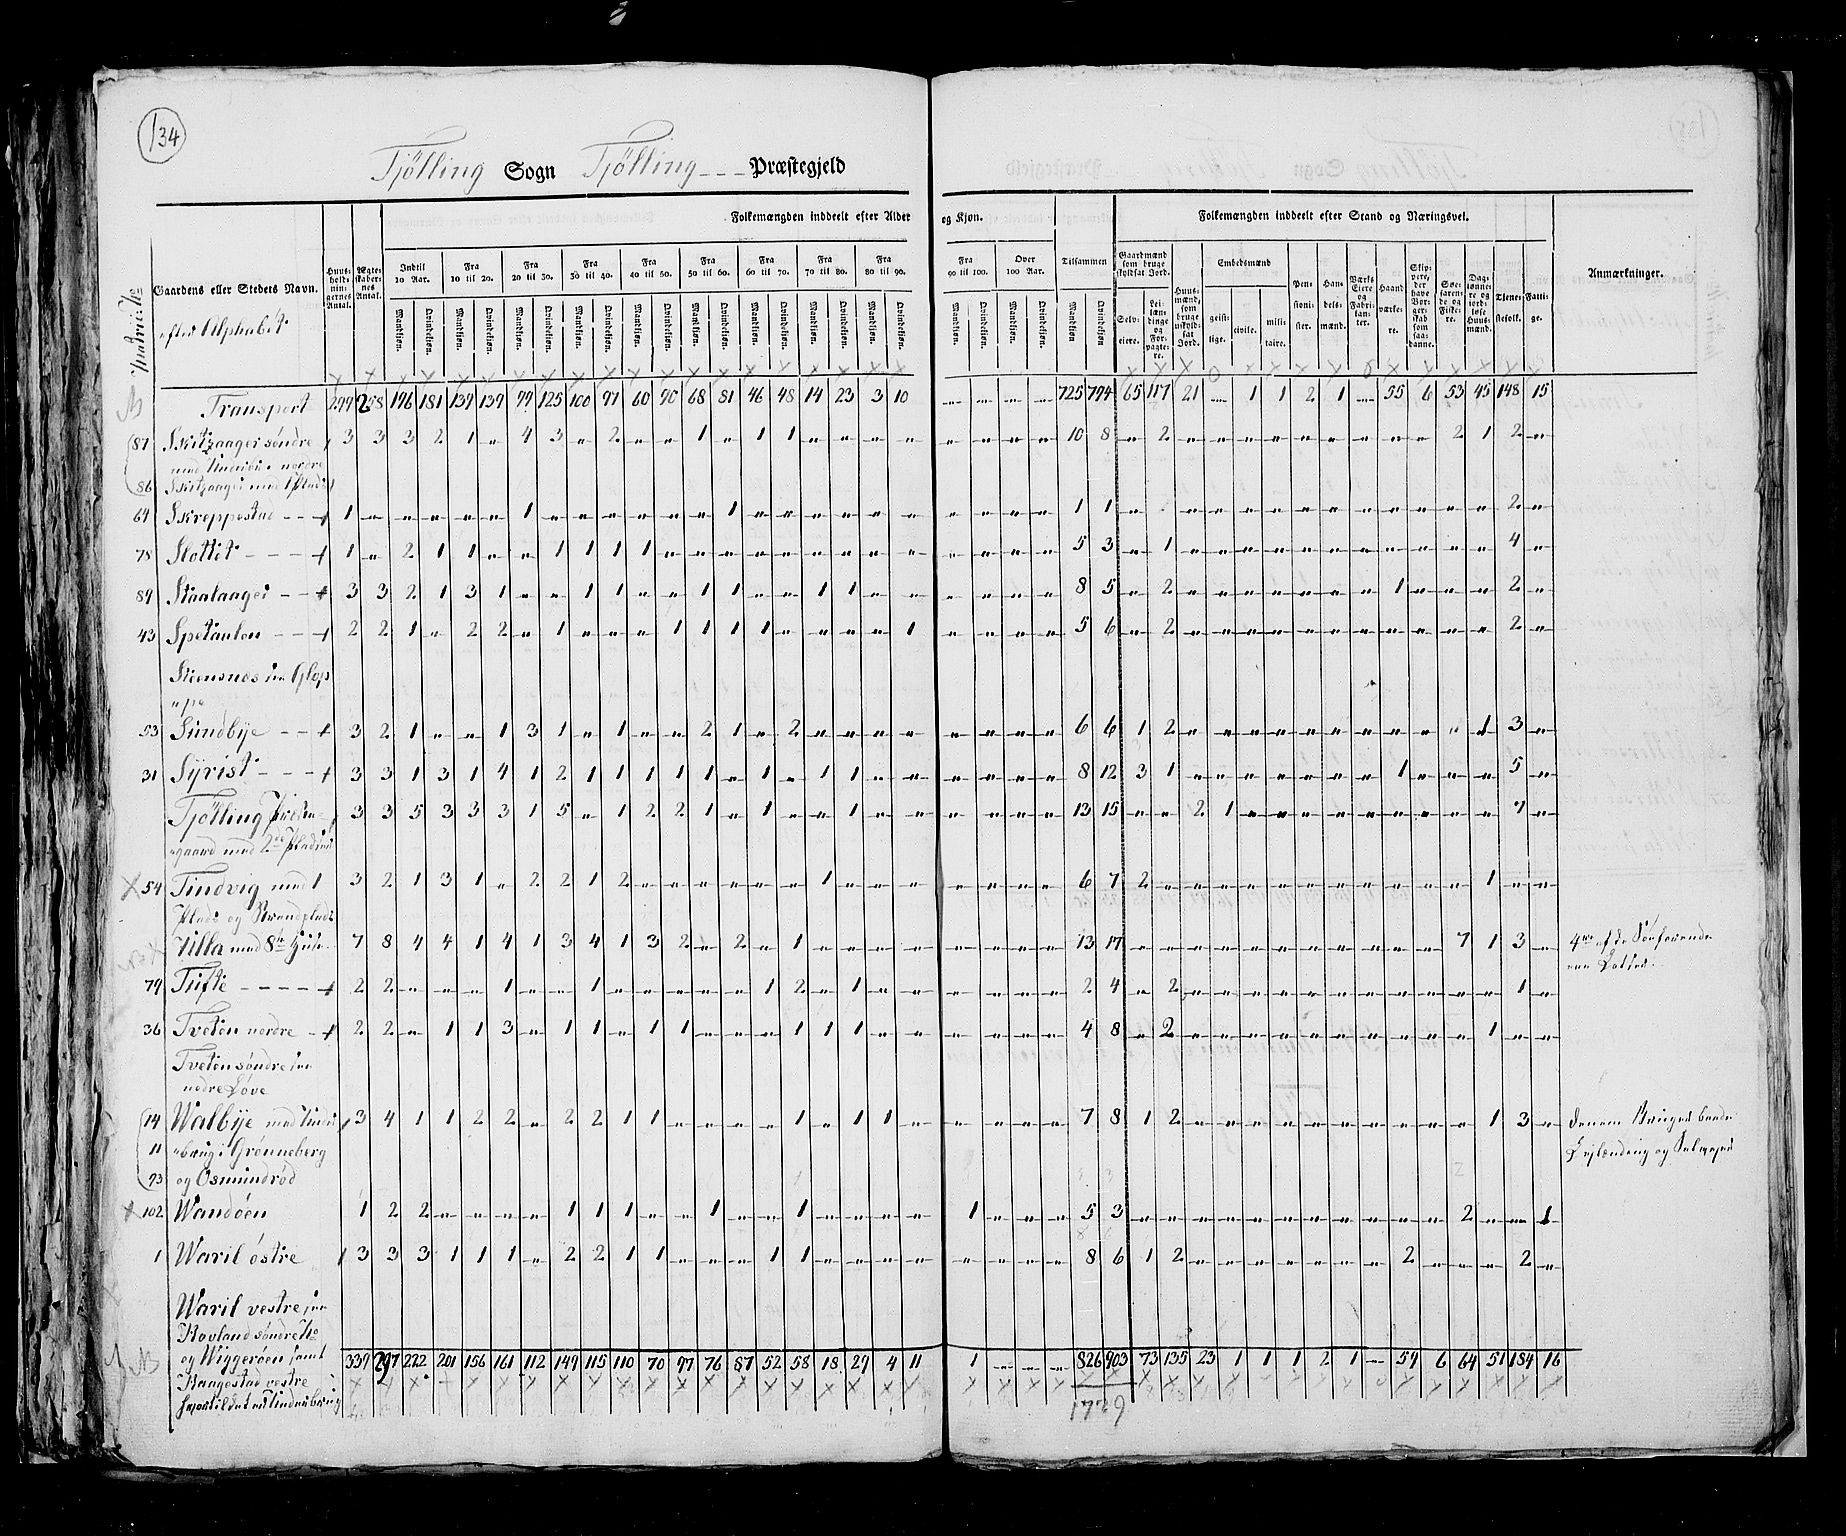 134
Tjölling Sogn Tjölling --- Præstegjeld
Folkemængden inddeelt efter Alder og Kjøn. Folkemængden inddeelt efter Stand og Næringsvei.
Matric: No
Gaardens eller Stedets Navn. Huus-holdningernes Antal. Ægteskabernes Antal. Indtil 10 Aar. Fra 10 til 20. Fra 20 til 30. Fra 30 til 40. Fra 40 til 50. Fra 50 til 60. Fra 60 til 70. Fra 70 til 80. Fra 80 til 90. Fra 90 til 100. Over 100 Aar. Tilsammen Embedsmænd Anmærkninger.
efter Alphabet
Mandkiøn. Qvindekiøn.
Transport 299 258 196 181 139 139 99 125 100 91 60 90 68 81 46 48 14 23 3 10 „ „ „ „ 725 794 65 117 21 „ 1 1 2 1 „ 55 6 53 45 148 15
87 Skitzaager søndre 3 3 3 2 1 „ 4 3 „ 2 „ „ 1 „ 1 1 „ „ „ „ „ „ „ „ 10 8 „ 2 „ „ „ „ „ „ „ „ „ 2 1 2 „
86 Skitzaager med 1 Plads
64 Skreppestad 1 „ „ „ „ „ 1 „ „ „ „ „ „ 1 „ „ „ „ „ „ „ „ „ „ 1 1 2 „
78 Slottet 1 „ 2 1 1 „ „ 1 1 1 1 „ „ „ „ „ „ „ „ „ „ „ „ „ 5 3 „ 1 „ „ „ „ „ „ „ „ „ „ „ 4 „
89 Staalaager 3 3 2 1 3 1 „ „ 1 1 „ „ 1 1 „ „ 1 1 „ „ „ „ „ „ 8 5 „ 2 „ „ „ „ „ „ „ 1 „ „ „ 2 „
43 Spetanlen 2 2 1 „ 2 2 „ 1 „ „ „ 1 1 1 1 „ „ „ „ 1 „ „ „ „ 5 6 „ 2 „ „ „ „ „ „ „ „ „ „ „ 2 „
53 Sundbye 3 2 1 „ „ 1 3 1 „ 1 „ „ 2 1 „ 2 „ „ „ „ „ „ „ „ 6 6 1 2 „ „ „ „ „ „ „ „ „ „ 1 3 „
31 Syrist 3 3 1 3 1 4 1 2 1 1 1 1 1 „ 1 „ 1 1 „ „ „ „ „ „ 8 12 3 1 „ „ „ „ „ „ „ 1 „ „ „ 5 „
Tjölling Præste- 3 3 5 3 3 3 1 5 „ 1 2 2 1 „ 1 „ „ 1 „ „ „ „ „ „ 13 15 „ „ 2 1 „ „ „ „ „ „ „ „ „ 7 „
gaard med 2de Pladser
54 Tindvig med 1 3 2 1 3 1 „ 2 2 1 2 „ „ „ „ „ „ 1 „ „ „ „ „ „ „ 6 7 2 „ „ „ „ „ „ „ „ „ „ „ 1 „ „
Plads og Strandplads
Ulla med 8te Huse 7 8 4 4 1 4 1 3 4 1 3 2 „ 2 „ 1 „ „ „ „ „ „ „ „ 13 17 „ „ „ „ „ „ „ „ „ „ „ 7 1 3 „ 4re af de Søefarende
ere Lodser.
79 Tufte 2 2 „ „ „ 1 „ „ 1 „ „ „ „ „ 1 2 „ 1 „ „ „ „ „ „ 2 4 „ 2 „ „ „ „ „ „ „ „ „ „ „ 1 „
36 Tveten nordre 2 2 „ 1 1 3 „ 1 1 „ 1 1 „ „ „ 1 1 1 „ „ „ „ „ „ 4 8 „ 2 „ „ „ „ „ „ „ „ „ „ 1 „ „
Tveten søndre see
nedre Løve
14 Walbye med Under- 3 4 1 1 2 2 „ 2 2 1 1 „ „ „ „ 1 „ 1 1 „ „ „ „ „ 7 8 1 2 „ „ „ „ „ „ „ „ „ „ 1 3 „
11 brug i Grønneberg
93 og Osmundrød
102 Wandöen 1 2 2 „ „ „ „ 1 1 1 „ „ 1 „ „ 1 „ „ „ „ 1 „ „ „ 5 3 „ „ „ „ „ „ „ „ „ „ „ 2 „ „ 1
1 Waril östre 3 3 3 1 1 1 „ 2 2 1 1 „ „ „ 1 1 „ „ „ „ „ „ „ „ 8 6 1 2 „ „ „ „ „ „ „ 2 „ „ „ 2 „
Waril vestre see
Rovland søndre No
og Wiggerøen samt
Kaagestad vestre
339 297 222 201 156 161 112 149 115 110 70 97 76 87 52 58 18 29 4 11 1 „ „ „ 826 903 73 135 23 1 1 1 2 1 „ 59 6 64 51 184 16
1729